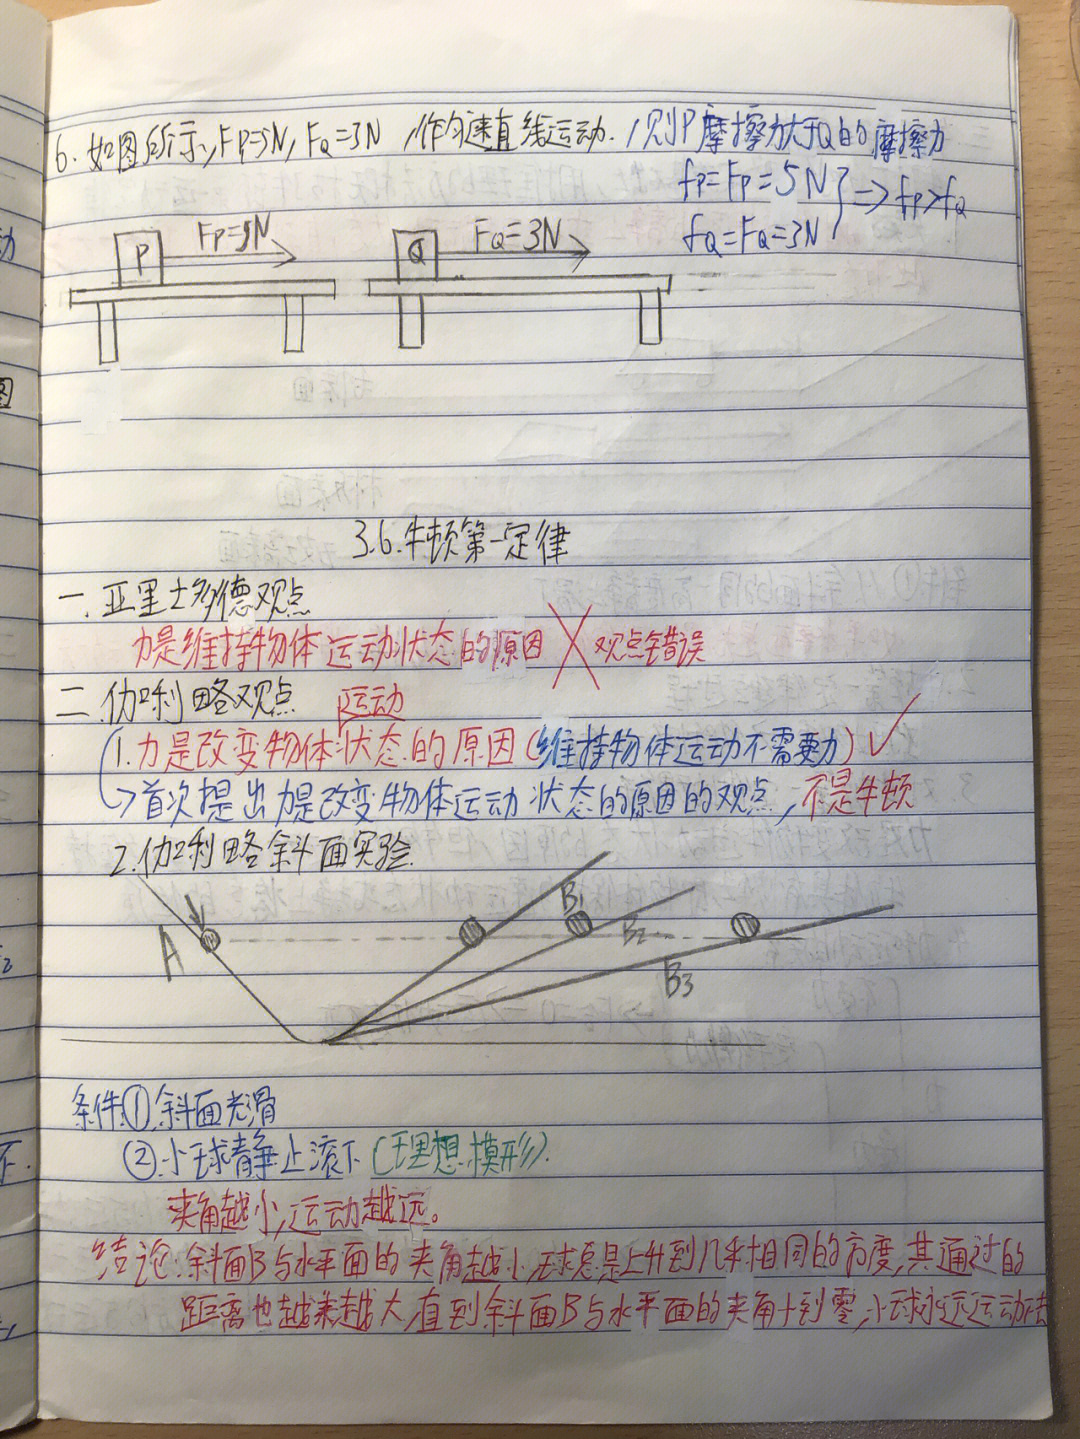 6.如图所示,FP=5N,FQ=3N,作匀速直线运动.则P摩擦力大于Q的摩擦力
fP=FP=5N
fQ=FQ=3N
}=>fP>fQ
P FP=5N
Q FQ=3N
3.6.牛顿第一定律
一.亚里士多德观点
力是维持物体运动状态的原因 ╳ 观点错误
二.伽利略观点
运动
1.力是改变物体状态的原因(维持物体运动不需要力)✓
→首次提出力是改变物体运动状态的原因的观点,不是牛顿
2.伽利略斜面实验.
A
B1
B2
B3
条件:①斜面光滑
②小球静止滚下(理想模形).
夹角越小,运动越远。
结论:斜面B与水平面的夹角越小,球总是上升到几乎相同的高度,其通过的
距离也越来越大,直到斜面B与水平面的夹角十到零,小球永远运动